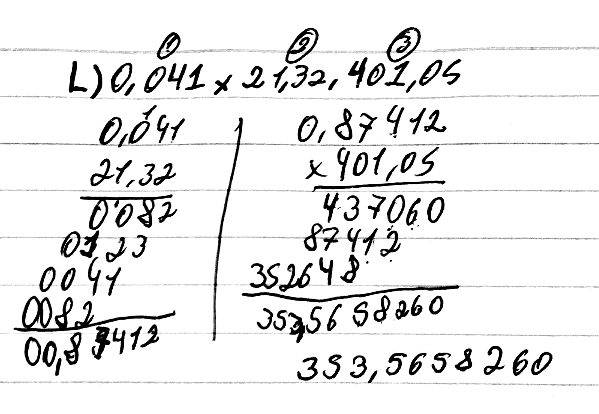 ① ② ③
L) 0,041 x 21,32. 401,05
1
0,041
21,32
0082
0123
0041
0082
00,87412
0,87412
x 401,05
437060
87412
352648
353,5658260
353,5658260